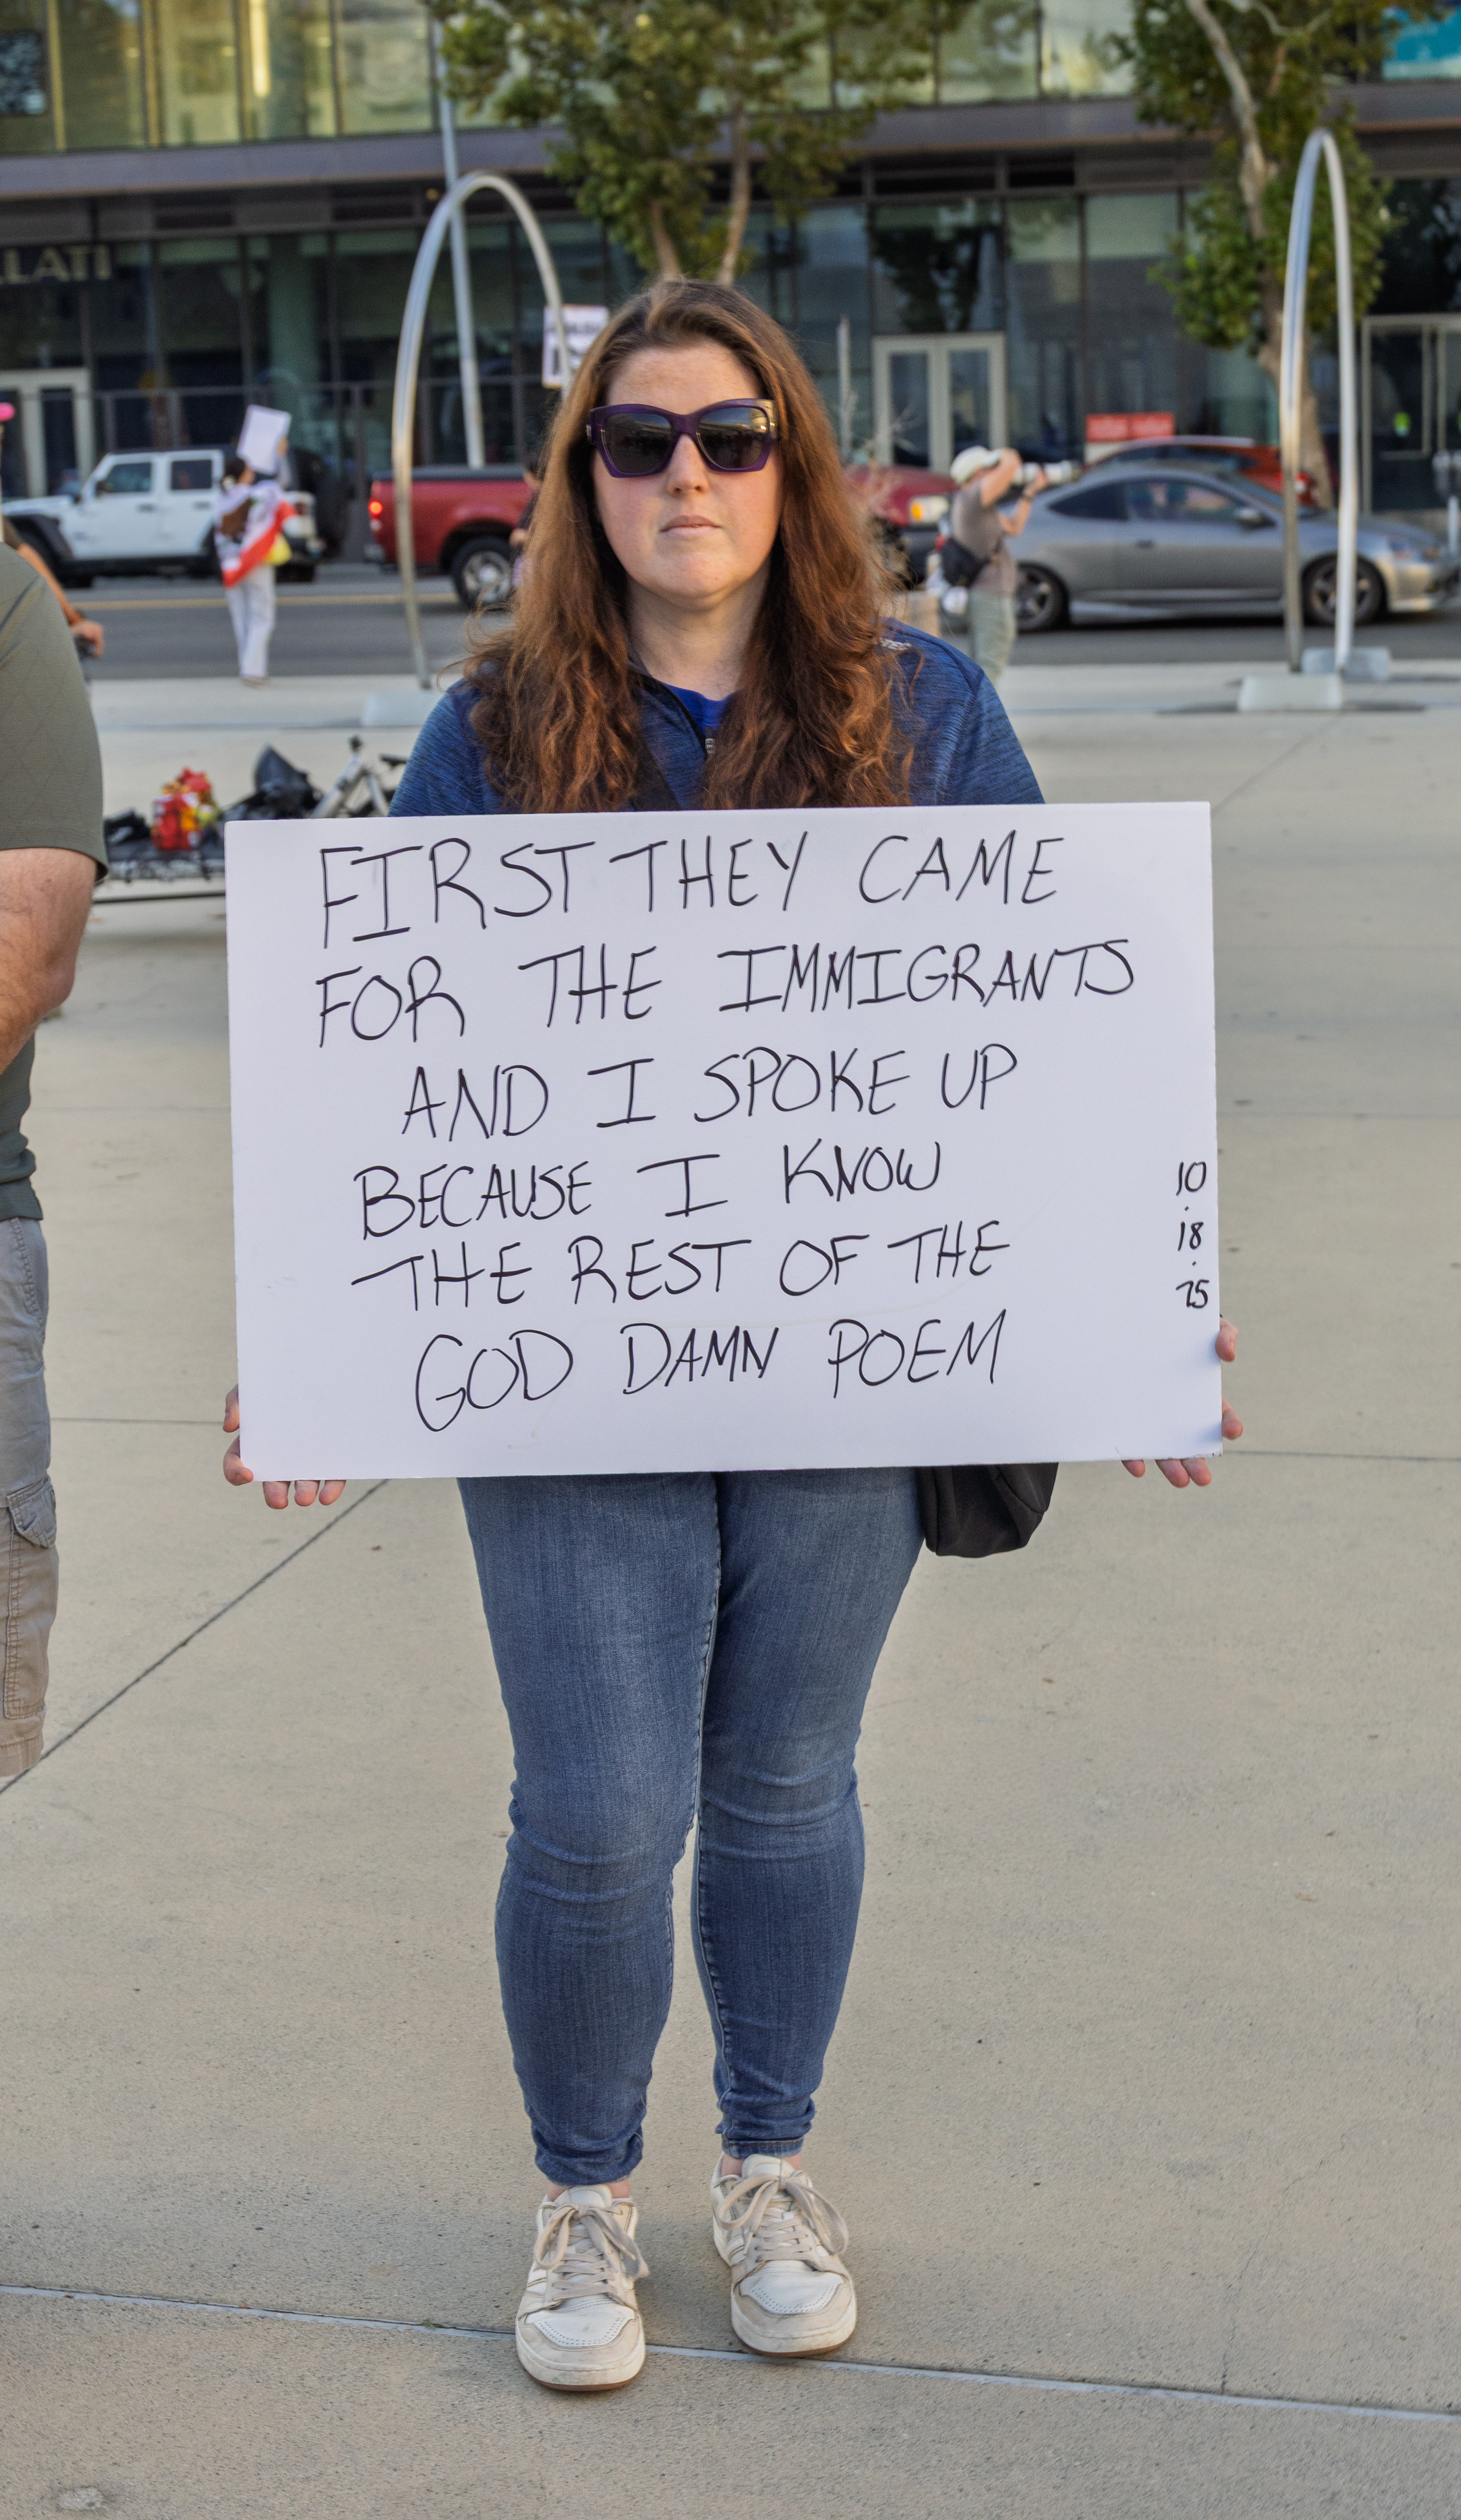 LATI
FIRST THEY CAME
FOR THE IMMIGRANTS
AND I SPOKE UP
BECAUSE I KNOW
THE REST OF THE
GOD DAMN POEM
10
.
18
.
25